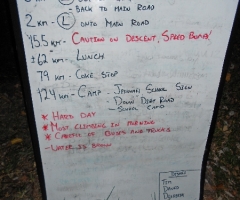 - BACK TO MAIN ROAD
2 KM - (L) ONTO MAIN ROAD
55 KM - CAUTION ON DESCENT, SPEED BUMPS!
±62 KM - LUNCH
79 KM - COKE STOP
124 KM - CAMP - SCHOOL SIGN
DOWN DIRT ROAD
SCHOOL CAMP
* HARD DAY
* MOST CLIMBING IN MORNING
* CAREFUL OF BUSES AND TRUCKS
- WATER IS BROWN
DISHES
TIM
DAVID